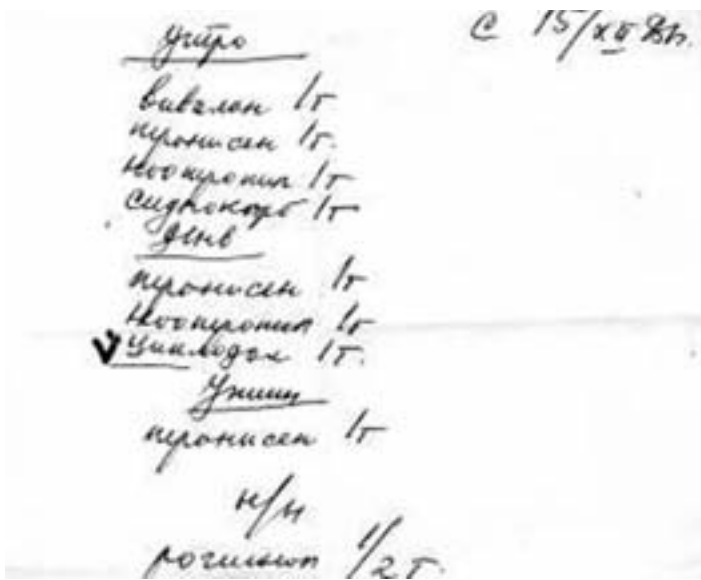 Утро
С 15/XII 85г.
вивалан 1т
пронисен 1т.
Ноотропил 1т
сиднокарб 1т
День
пронисен 1т
Ноотропил 1т
V Циклодол 1т.
Ужин
пронисен 1т
н/н
рогипнол 1/2 т.